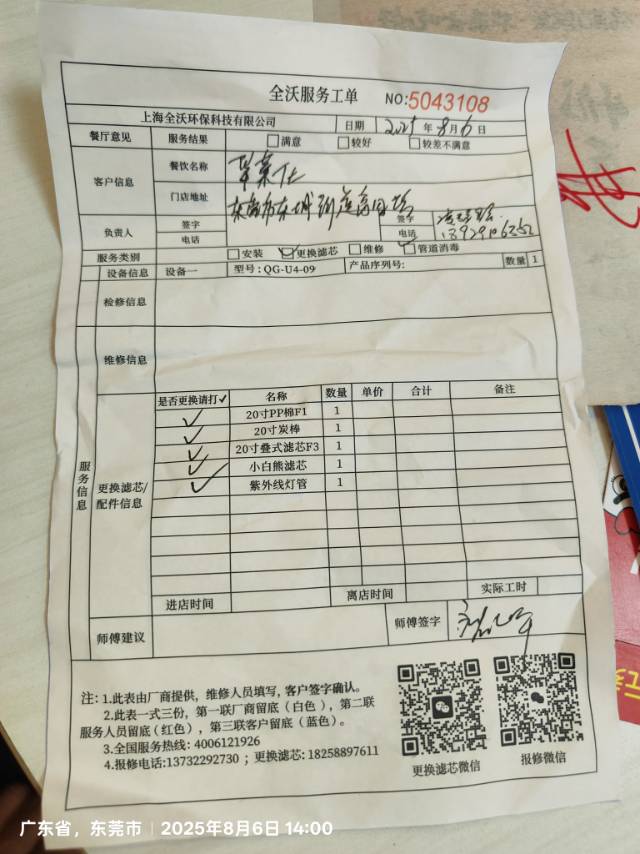 全沃服务工单 NO:5043108
上海全沃环保科技有限公司 日期 2025年8月6日
餐厅意见 服务结果 满意 较好 较差不满意
客户信息 餐饮名称
门店地址
负责人 签字 签字
电话 电话
服务类别 安装 更换滤芯 维修 管道消毒
设备信息 设备一 型号:QG-U4-09 产品序列号: 数量 1
检修信息
维修信息
服务信息
更换滤芯/配件信息
是否更换请打✓ 名称 数量 单价 合计 备注
✓ 20寸PP棉F1 1
✓ 20寸炭棒 1
✓ 20寸叠式滤芯F3 1
✓ 小白熊滤芯 1
✓ 紫外线灯管 1
进店时间 离店时间 实际工时
师傅建议 师傅签字
注:1.此表由厂商提供,维修人员填写,客户签字确认。
2.此表一式三份,第一联厂商留底(白色),第二联
服务人员留底(红色),第三联客户留底(蓝色)。
3.全国服务热线:4006121926
4.报修电话:13732292730;更换滤芯:18258897611
更换滤芯微信 报修微信
广东省,东莞市 2025年8月6日 14:00